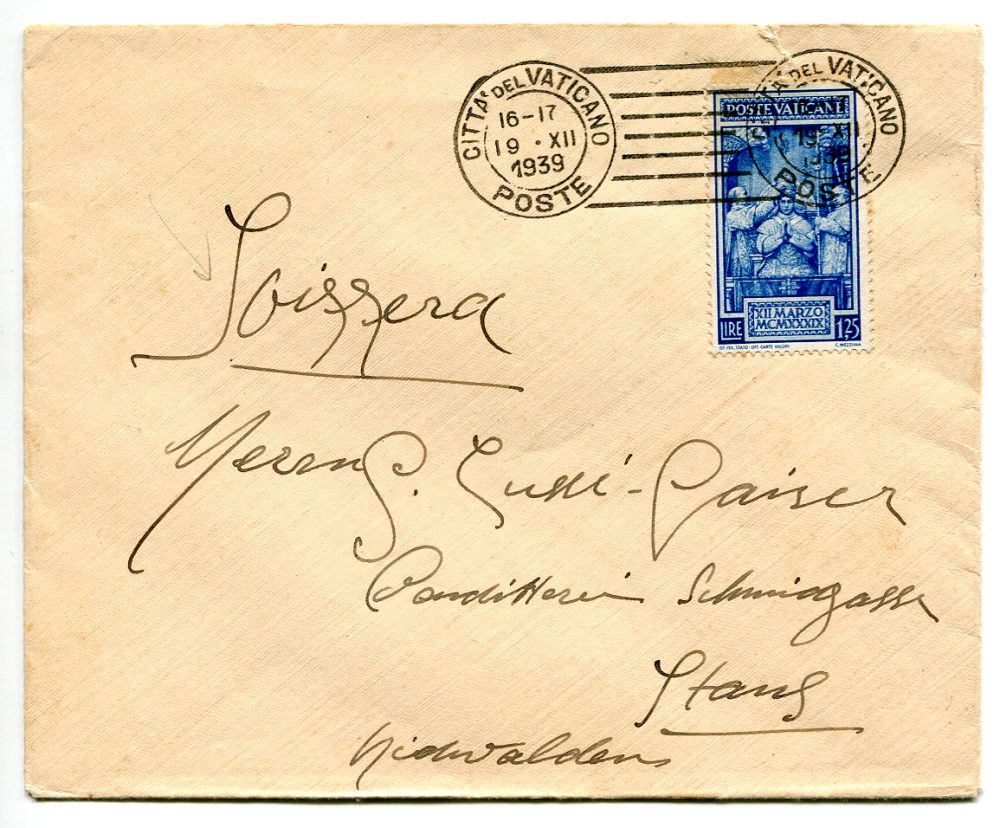 CITTA' DEL VATICANO
16-17
19 · XII
1939
POSTE
CITTA' DEL VATICANO
19 · XII
1939
POSTE
POSTE VATICANE
XII MARZO
MCMXXXIX
LIRE 1,25
IST. POL. STATO - OFF. CARTE VALORI C. MEZZANA
Svizzera
Herrn G. Lussi-Gaiser
Conditterei Schmiedgasse
Stans
Nidwalden